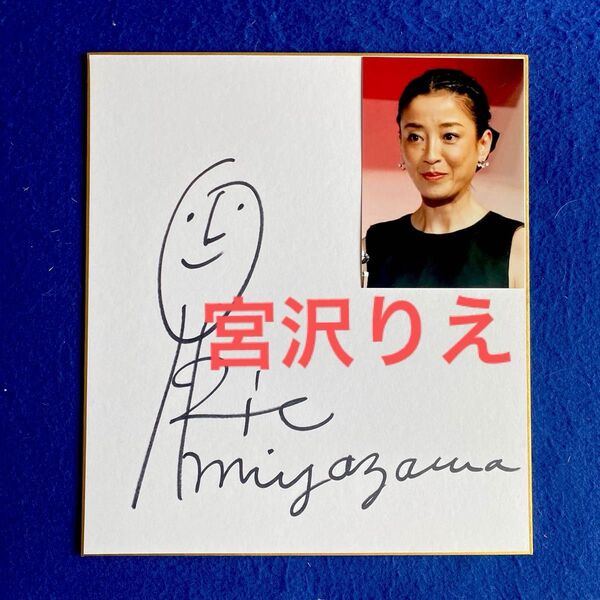 宮沢りえ
Rie
miyazawa